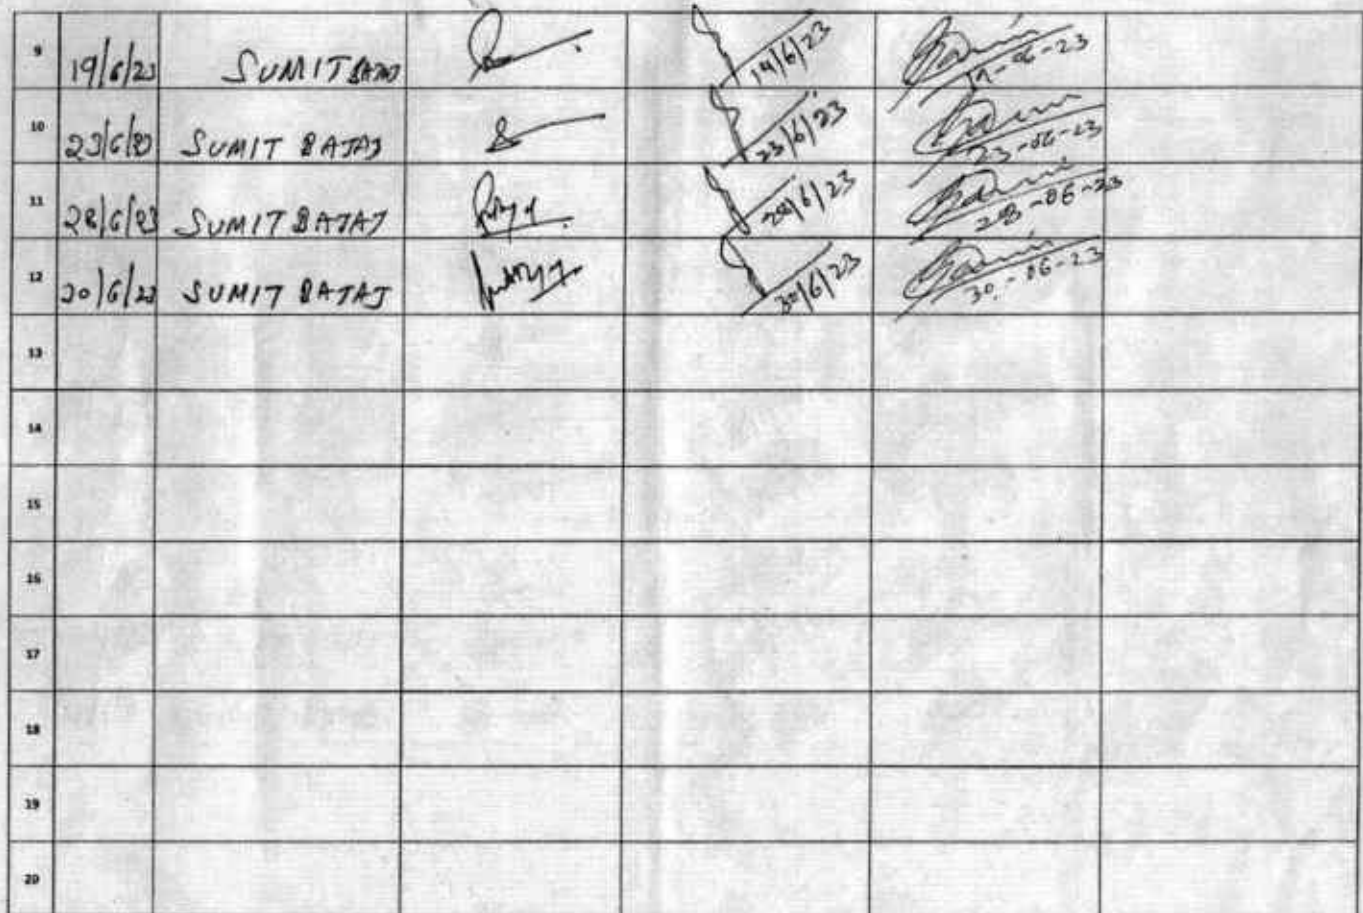 9 19/6/23 SUMIT BAJAJ 19/6/23 19-06-23
10 23/6/23 SUMIT BAJAJ 23/6/23 23-06-23
11 28/6/23 SUMIT BAJAJ 28/6/23 28-06-23
12 30/6/23 SUMIT BAJAJ 30/6/23 30-06-23
13
14
15
16
17
18
19
20